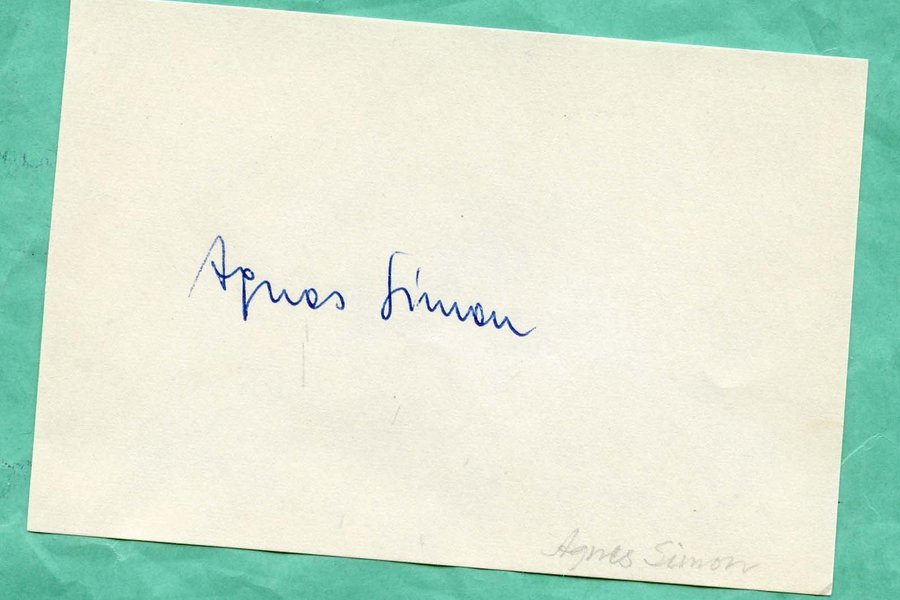 Agnes Simon
Agnes Simon